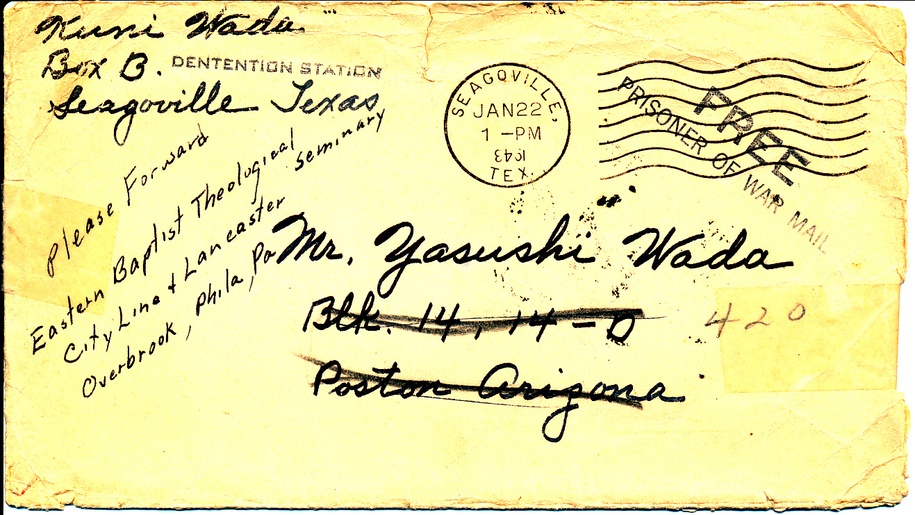 Kuni Wada
Box B. DENTENTION STATION
Seagoville Texas
SEAGOVILLE,
JAN 22
1 - PM
1943
TEX.
FREE
PRISONER OF WAR MAIL
Please Forward
Eastern Baptist Theological Seminary
City Line & Lancaster
Overbrook, Phila, Pa
Mr. Yasushi Wada
Blk. 14, 14-D
Poston Arizona
420